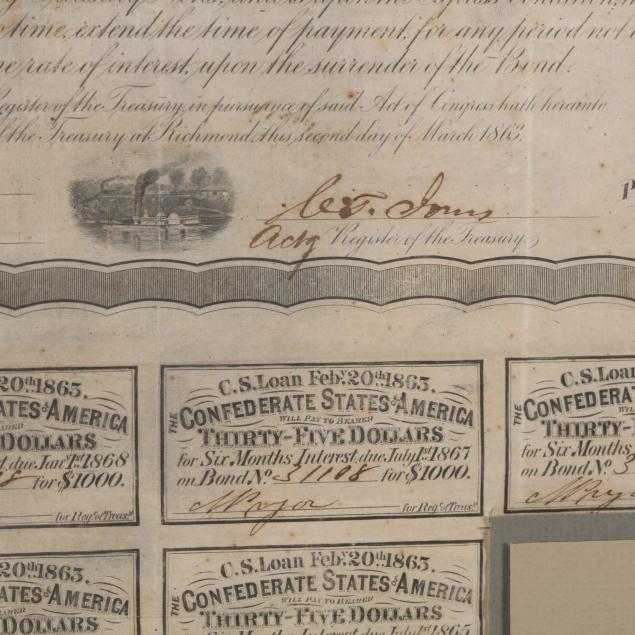 time, extend the time of payment, for any period not
rate of interest, upon the surrender of the Bond.
Register of the Treasury, in pursuance of said Act of Congress hath hereunto
the Treasury at Richmond, this second day of March 1863.
Actg Register of the Treasury
20th 1863.
ATES OF AMERICA
BEARER
DOLLARS
due Jany 1st 1868
8 for $1000.
for Regr of Treasy
C.S. Loan Feby 20th 1863.
THE CONFEDERATE STATES OF AMERICA
WILL PAY TO BEARER
THIRTY-FIVE DOLLARS
for Six Months Interest, due July 1st 1867
on Bond No 31108 for $1000.
for Regr of Treasy
C.S. Loan
THE CONFEDERATE
WILL PAY
THIRTY-
for Six Months
on Bond No 3
20th 1863.
ATES OF AMERICA
BEARER
DOLLARS
C.S. Loan Feby 20th 1863.
THE CONFEDERATE STATES OF AMERICA
WILL PAY TO BEARER
THIRTY-FIVE DOLLARS
for Six Months Interest, due July 1st 1865